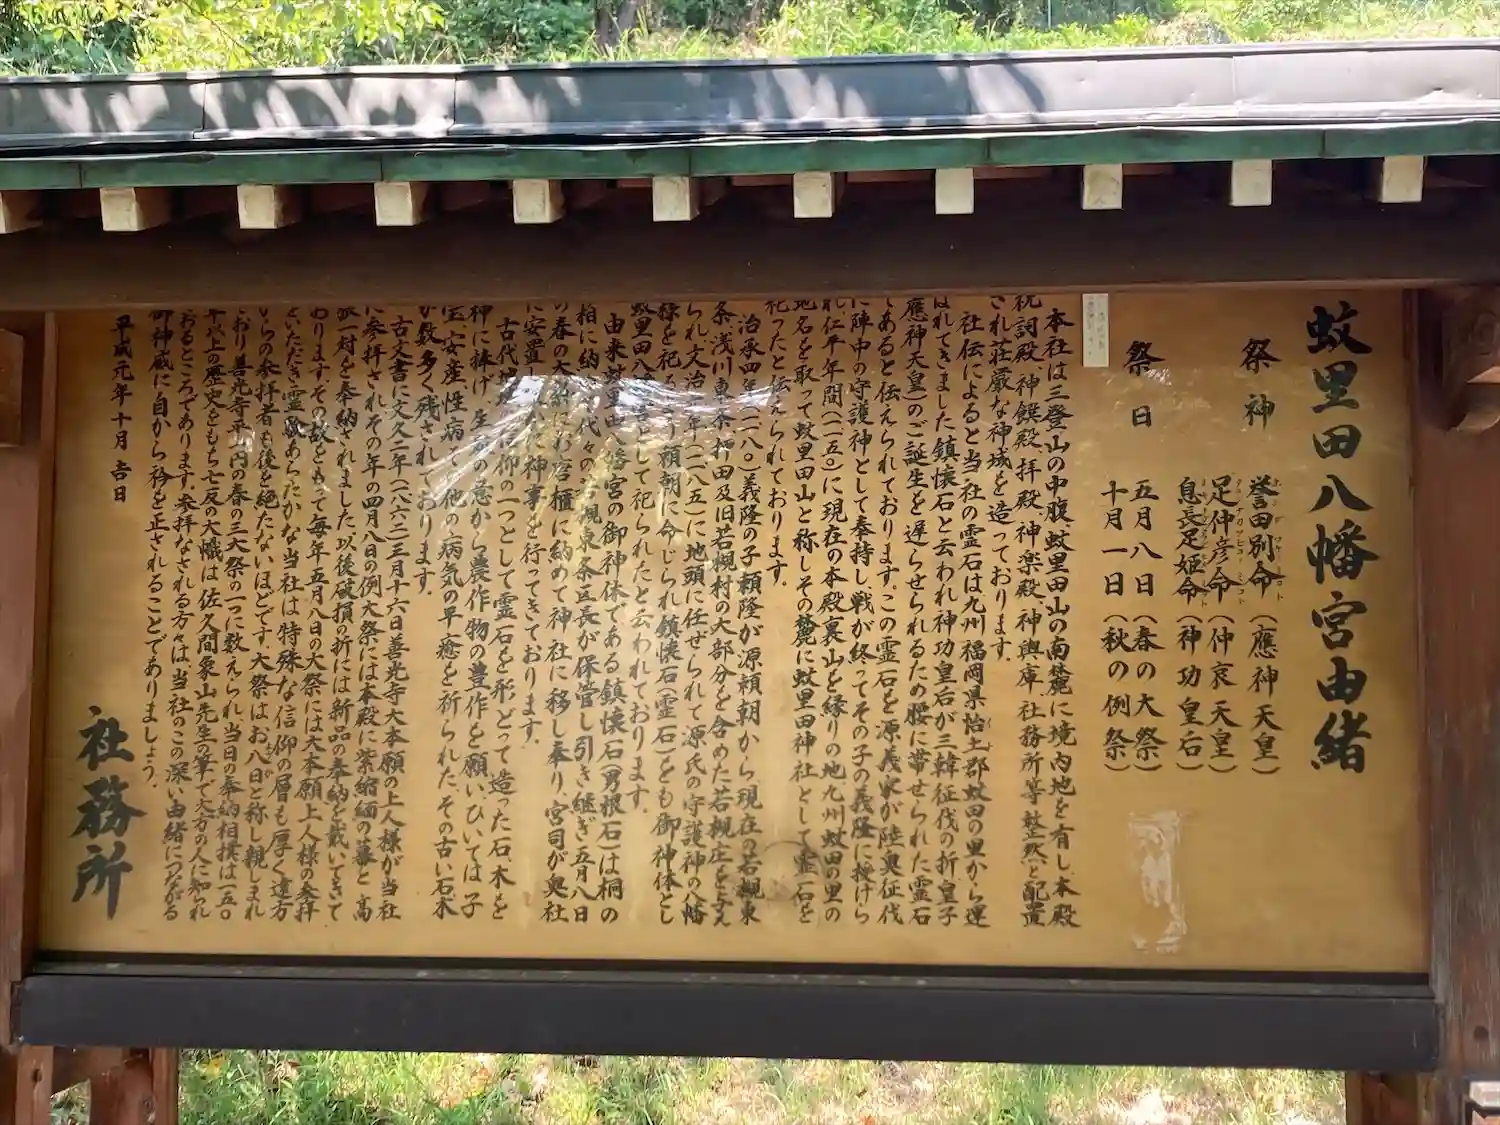 蚊里田八幡宮由緒
祭神
誉田別命(應神天皇)
足仲彦命(仲哀天皇)
息長足姫命(神功皇后)
祭日
五月八日(春の大祭)
十月一日(秋の例祭)
本社は三登山の中腹、蚊里田山の南麓に境内地を有し、本殿
祝詞殿、神饌殿、拝殿、神楽殿、神輿庫、社務所等整然と配置
され荘厳な神域を造っております。
社伝によると当社の霊石は九州福岡県怡土郡蚊田の里から運
ばれてきました鎮懐石と云われ神功皇后が三韓征伐の折皇子
(應神天皇)のご誕生を遅らせられるため腰に帯せられた霊石
であると伝えられております。この霊石を源義家が陸奥征伐
に陣中の守護神として奉持し戦が終ってその子の義隆に授けら
れ、仁平年間(一一五〇)に現在の本殿裏山を縁りの地、九州蚊田の里の
地名を取って蚊里田山と称しその麓に蚊里田神社として霊石を
祀ったと伝えられております。
治承四年(一一八〇)義隆の子頼隆が源頼朝から、現在の若槻東
条、浅川東条押田及旧若槻村の大部分を含めた若槻庄を与え
られ、文治元年(一一八五)に地頭に任ぜられて源氏の守護神の八幡
様を祀るよう頼朝に命じられ鎮懐石(霊石)をも御神体とし
蚊里田八幡宮として祀られたと云われております。
由来蚊里田八幡宮の御神体である鎮懐石(男根石)は桐の
相に納め代々の若槻東条区長が保管し引き継ぎ五月八日
の春の大祭にわ宮櫃に納めて神社に移し奉り、宮司が奥社
に安置し神事を行ってきております。
古代地の信仰の一つとして霊石を形どって造った石、木を
神に捧げ、生の慈から農作物の豊作を願い、ひいては子
宝、安産、性病、その他の病気の早癒を祈られた、その古い石木
が数多く残されております。
古文書に文久二年(一八六二)三月十六日善光寺大本願の上人様が当社
に参拝され、その年の四月八日の例大祭には本殿に紫縮緬の幕と、高
張一対を奉納されました、以後破損の折には新品の奉納を戴いてきて
おります。その故をもって毎年五月八日の大祭には大本願上人様の参拝
をいただき霊験あらたかな当社は特殊な信仰の層も厚く遠方
からの参拝者も後を絶たないほどです。大祭は、お八日と称し親しまれ
ており善光寺平内の春の三大祭の一つに数えられ、当日の奉納相撲は一五〇
年以上の歴史をもち七反の大幟は佐久間象山先生の筆で大方の人に知られ
ているところであります。参拝なされる方々は、当社のこの深い由緒につながる
御神威に自から衿を正されることでありましょう。
平成元年十月吉日
社務所